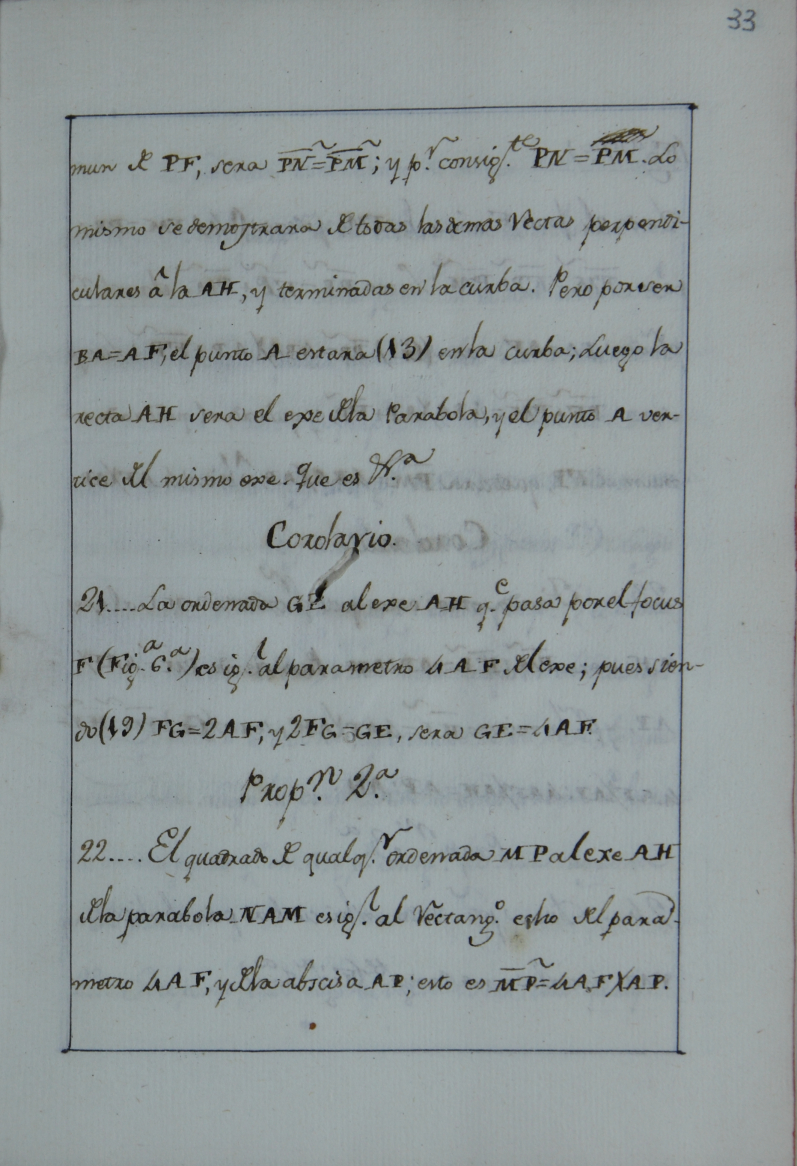 33
mun de PF, sera P̅N̅² = P̅M̅²; y p.ʳ consig.ᵗᵉ PN = PM. Lo
mismo se demostrara de todas las demas Rectas perpendi-
culares â la AH, y terminadas en la curba. Pero por ser
BA=AF, el punto A estara (13) en la curba; Luego la
recta AH sera el exe de la Parabola, y el punto A ver-
tice del mismo exe. Que es
Corolario.
21....La ordenada GE al exe AH q.ᵉ pasa por el focus
F (Fig.ᵃ 6.ᵃ) es ig.ˡ al parametro 4AF del exe; pues sien-
do (19) FG=2AF, y 2FG=GE, sera GE=4AF.
Prop.ⁿ 2.ᵃ
22....El quadrado de qualq.ʳ ordenada MP al exe AH
de la parabola NAM es ig.ˡ al Rectang.º echo del para-
metro 4AF, y de la abscisa AP; esto es M̅P̅² = 4AF×AP.